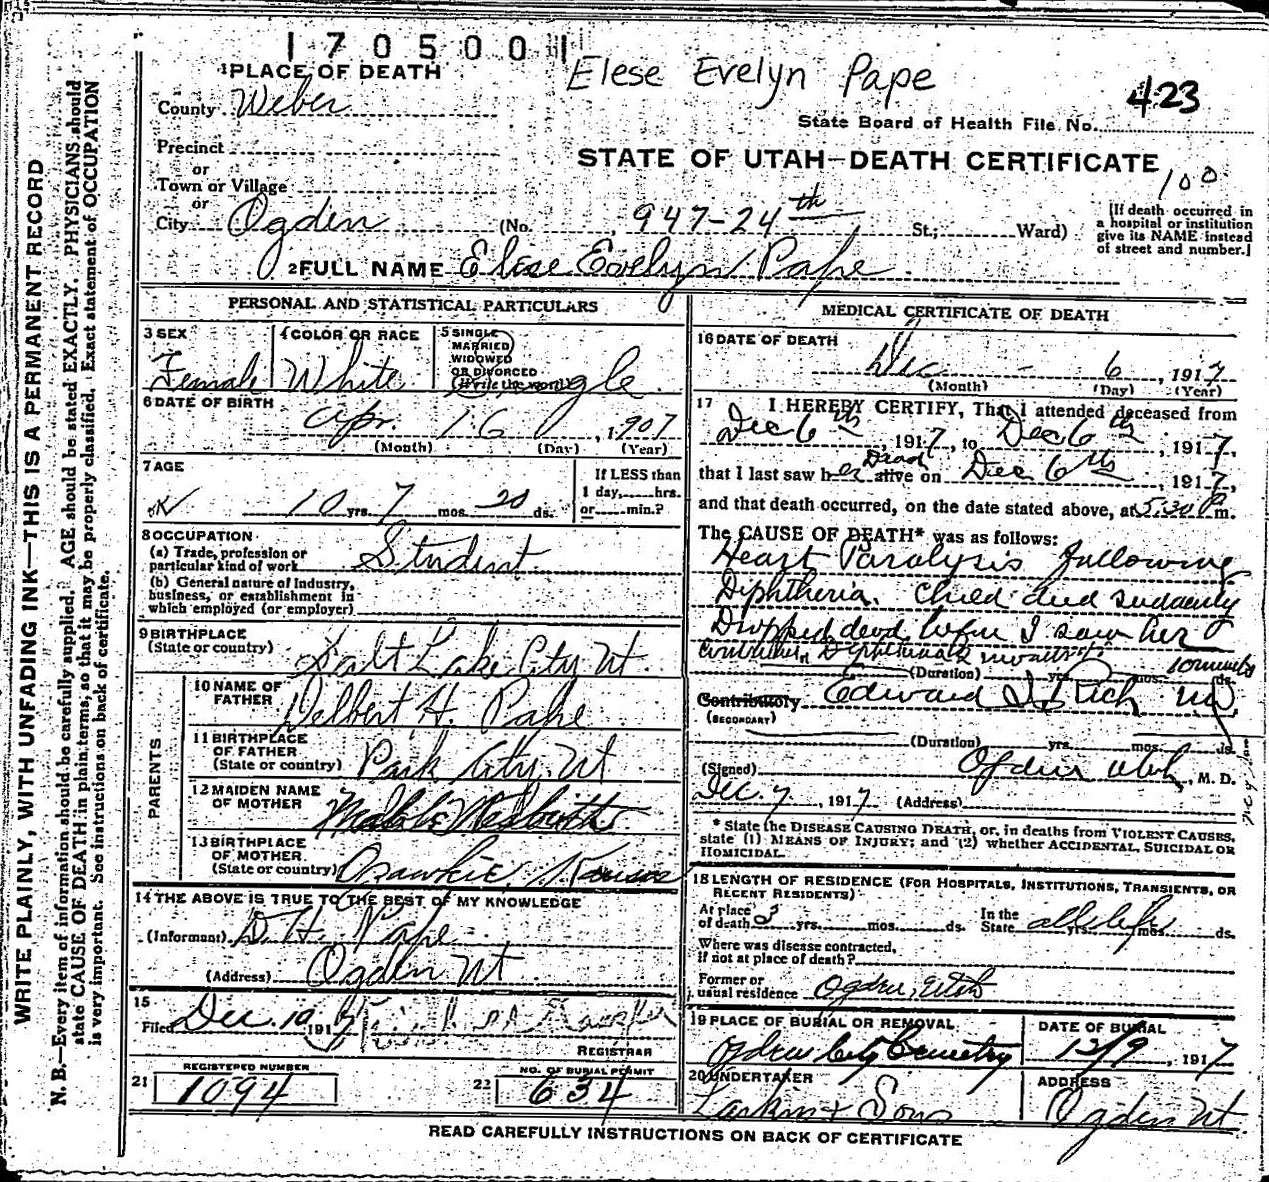 1705001
Elese Evelyn Pape
423
1 PLACE OF DEATH
County Weber
State Board of Health File No.
Precinct
or
Town or Village
or
STATE OF UTAH—DEATH CERTIFICATE
100
City Ogden (No. 947-24th St.; Ward)
[If death occurred in
a hospital or institution
give its NAME instead
of street and number.]
2 FULL NAME Elese Evelyn Pape
PERSONAL AND STATISTICAL PARTICULARS
3 SEX
Female
4 COLOR OR RACE
White
5 SINGLE
MARRIED
WIDOWED
OR DIVORCED
(Write the word)
6 DATE OF BIRTH
Apr. 16, 1907
(Month) (Day) (Year)
7 AGE
10 yrs. 7 mos. 20 ds.
If LESS than
1 day, hrs.
or min.?
8 OCCUPATION
(a) Trade, profession or
particular kind of work Student
(b) General nature of Industry,
business, or establishment in
which employed (or employer)
9 BIRTHPLACE
(State or country) Salt Lake City, Ut.
PARENTS
10 NAME OF
FATHER Delbert H. Pape
11 BIRTHPLACE
OF FATHER
(State or country) Park City, Ut
12 MAIDEN NAME
OF MOTHER
13 BIRTHPLACE
OF MOTHER
(State or country) Ozawkie, Kansas
14 THE ABOVE IS TRUE TO THE BEST OF MY KNOWLEDGE
(Informant) D. H. Pape
(Address) Ogden Ut
15
Filed Dec. 19 1917
REGISTRAR
21 REGISTERED NUMBER
1094
22 NO. OF BURIAL PERMIT
634
MEDICAL CERTIFICATE OF DEATH
16 DATE OF DEATH
Dec - 6, 1917
(Month) (Day) (Year)
17 I HEREBY CERTIFY, That I attended deceased from
Dec 6th, 1917, to Dec 6th, 1917,
that I last saw her Dead alive on Dec 6th, 1917,
and that death occurred, on the date stated above, at 5.30 P m.
The CAUSE OF DEATH* was as follows:
Heart Paralysis following
Diphtheria. Child died suddenly
Dropped dead before I saw her
(Duration) yrs. mos. ds.
Contributory Edward I. Rich MD
(SECONDARY)
(Duration) yrs. mos. ds.
(Signed) Ogden Utah, M. D.
Dec. 7, 1917 (Address)
* State the DISEASE CAUSING DEATH, or, in deaths from VIOLENT CAUSES,
state (1) MEANS OF INJURY; and (2) whether ACCIDENTAL, SUICIDAL OR
HOMICIDAL.
18 LENGTH OF RESIDENCE (FOR HOSPITALS, INSTITUTIONS, TRANSIENTS, OR
RECENT RESIDENTS)
At place
of death 3 yrs. mos. ds.
In the
State all life yrs. mos. ds.
Where was disease contracted,
if not at place of death?
Former or
usual residence Ogden, Utah
19 PLACE OF BURIAL OR REMOVAL
Ogden City Cemetry
DATE OF BURIAL
12/9, 1917
20 UNDERTAKER
Larkin & Sons
ADDRESS
Ogden Ut
READ CAREFULLY INSTRUCTIONS ON BACK OF CERTIFICATE
WRITE PLAINLY, WITH UNFADING INK—THIS IS A PERMANENT RECORD
N. B.—Every item of information should be carefully supplied. AGE should be stated EXACTLY. PHYSICIANS should
state CAUSE OF DEATH in plain terms, so that it may be properly classified. Exact statement of OCCUPATION
is very important. See instructions on back of certificate.